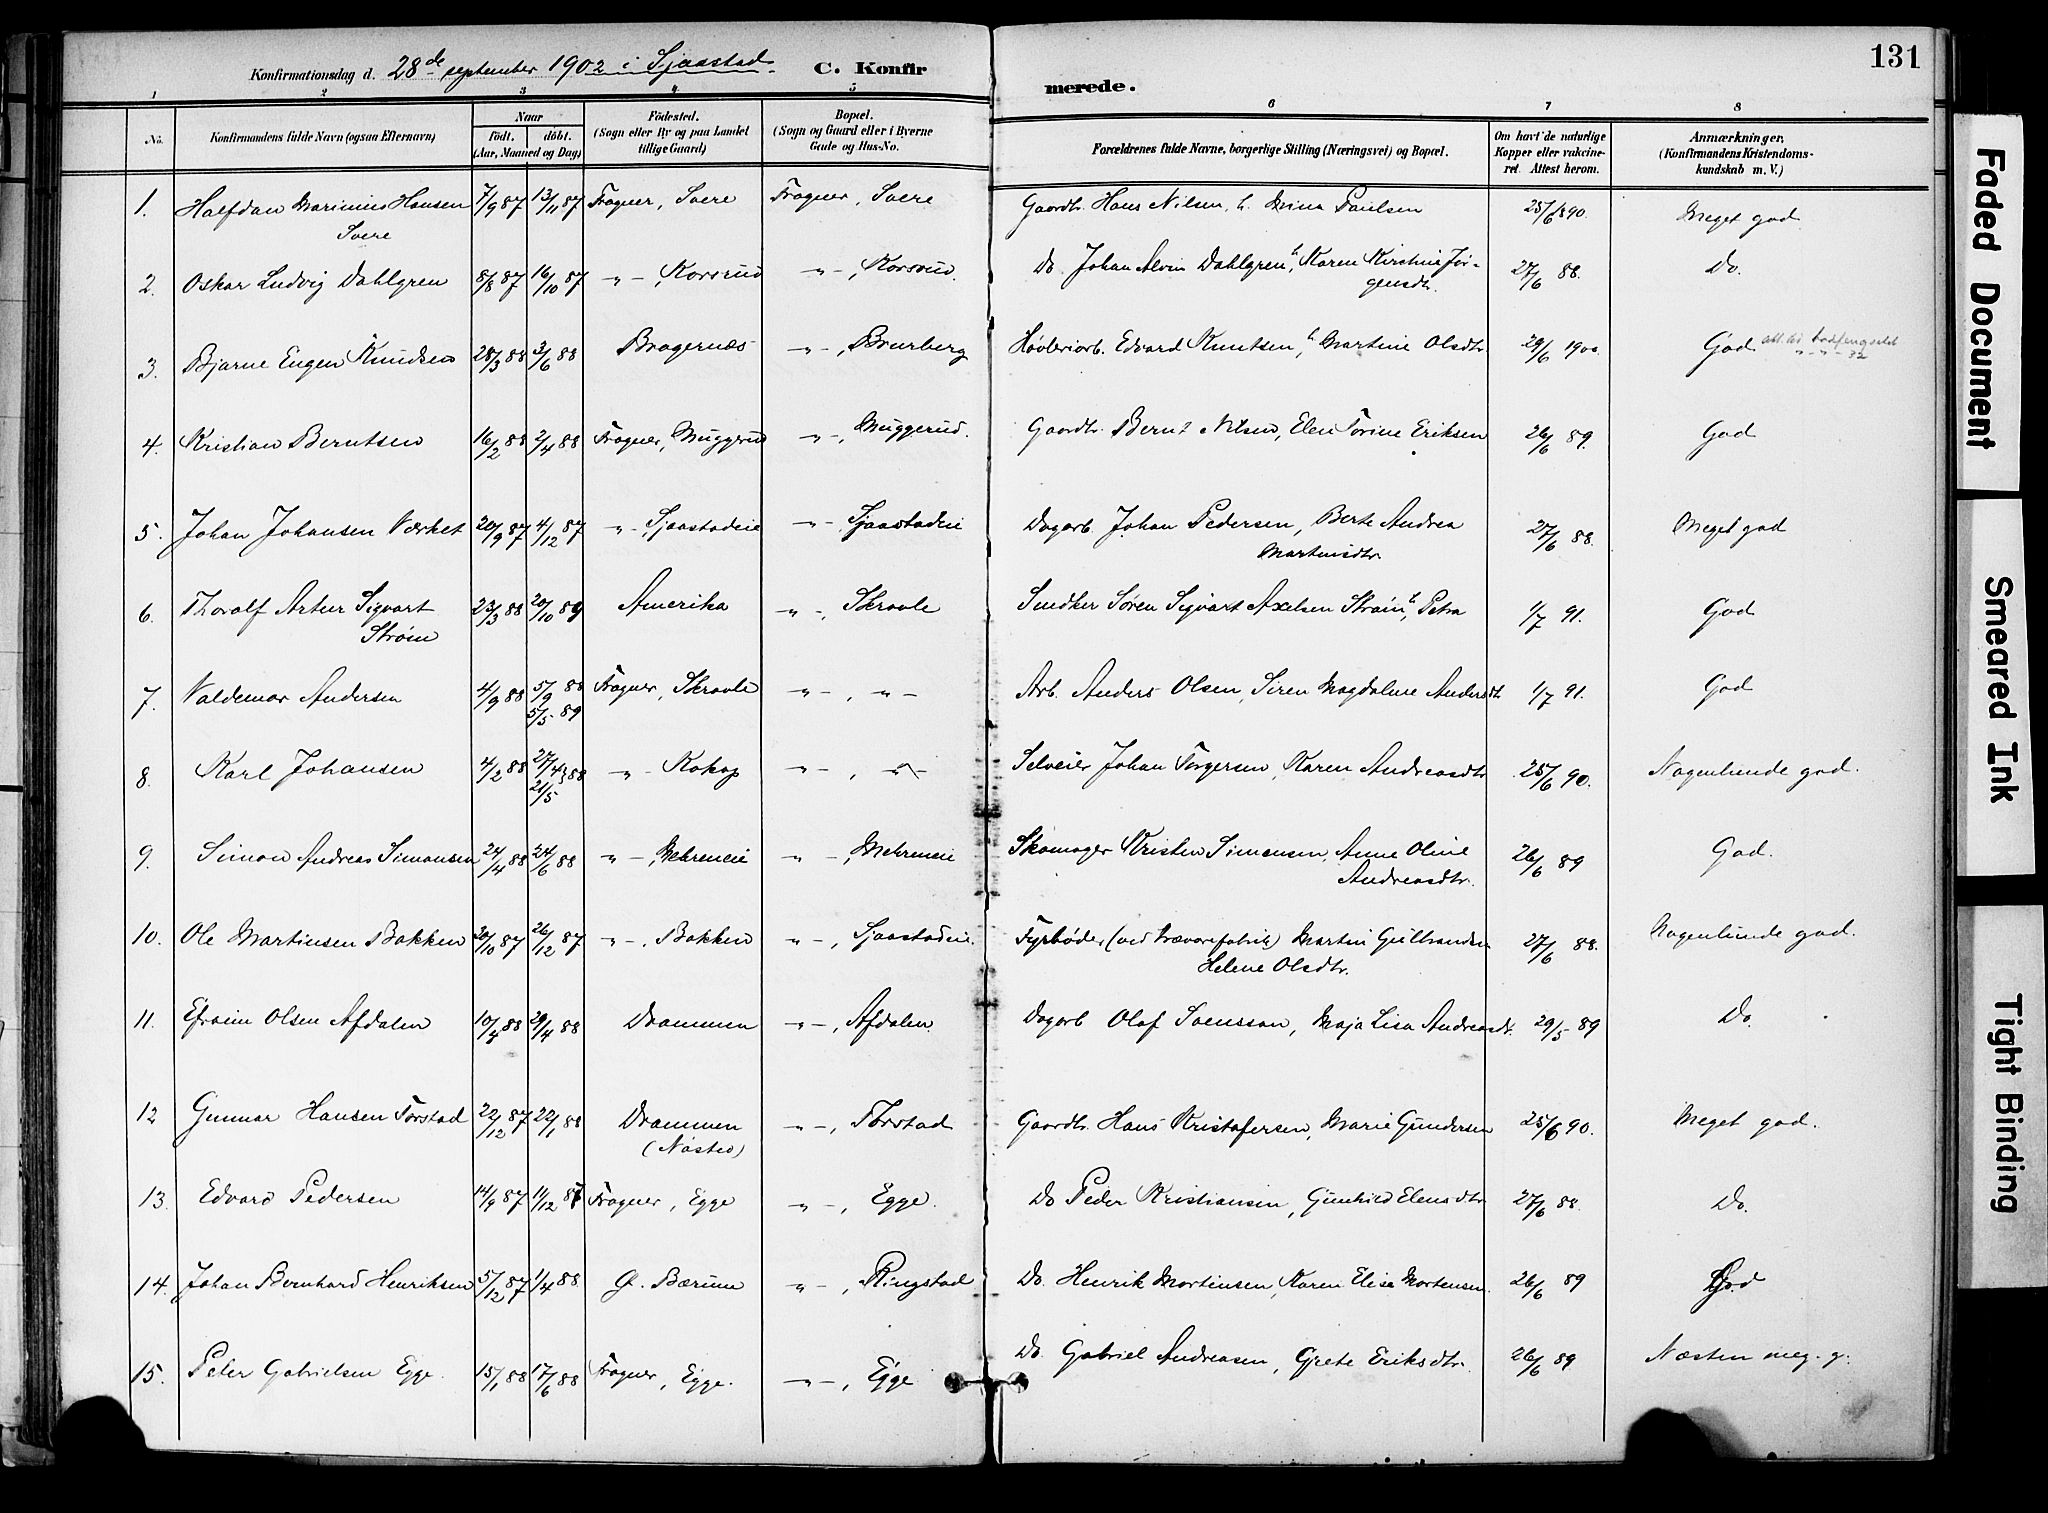 Konfirmationsdag d. 28de september 1902 i Sjaastad. C. Konfirmerede. 131
1 2 3 4 5 6 7 8
No. Konfirmandens fulde Navn (ogsaa Efternavn) Naar födt. döbt. (Aar, Maaned og Dag) Födested. (Sogn eller By og paa Landet tillige Gaard) Bopæl. (Sogn og Gaard eller i Byerne Gade og Hus-No. Forældrenes fulde Navne, borgerlige Stilling (Næringsvei) og Bopæl. Om havt de naturlige Kopper eller vakcineret. Attest herom. Anmærkninger, (Konfirmandens Kristendomskundskab m. V.)
1. Halfdan Marinius Hansen Svere 7/9 87 13/11 87 Frogner, Svere Frogner, Svere Gaardbr. Hans Nilsen, h. Mina Paulsen 25/6 1890. Meget god.
2. Oskar Ludvig Dahlgren 8/8 87 16/10 87 -"-, Korsrud -"-, Korsrud. Do. Johan Alvin Dahlgren, h. Karen Kirstine Jörgensdtr. 27/6 88. Do.
3. Bjarne Eugen Knudsen 28/3 88 3/6 88 Bragernæs -"-, Brurberg Høvleriarb. Edvard Knutsen, h. Martine Olsdtr. 29/6 1900 God
4. Kristian Berntsen 16/2 88 2/4 88 Frogner, Muggerud -"-, Muggerud. Gaardbr. Bernt Nilsen, Elen Torine Eriksen 26/6 89. God
5. Johan Johansen Værket 20/9 87 4/12 87 -"-, Sjaastadeie -"-, Sjaastadeie Dagarb. Johan Pedersen, Berte Andrea Martinsdtr. 27/6 88. Meget god
6. Thoralf Artur Sigvart Strøm 23/3 88 20/10 89 Amerika -"-, Skravle Snedker Søren Sigvart Axelsen Strøm, h. Petra 1/7 91. God
7. Valdemar Andersen 4/9 88 5/9 88 5/5 89 Frogner, Skravle -"-, -"- Arb. Anders Olsen, Siren Magdalene Andersdtr. 1/7 91. God
8. Karl Johansen 4/2 88 27/4 21/5 88 -"- Kokop -"-, -"- Selveier Johan Torgersen, Karen Andreasdtr. 25/6 90. Nogenlunde god.
9. Simon Andreas Simonsen 24/4 88 24/6 88 -"-, Mehreneie -"-, Mehreneie Skomager Kristen Simensen, Anne Oline Andreasdtr. 26/6 89 God.
10. Ole Martinsen Bakken 30/10 87 26/12 87 -"-, Bakken -"-, Sjaastadeie. Fyrbøder (ved trævarefabrik) Martin Gulbrandsen Helene Olsdtr. 27/6 88. Nogenlunde god.
11. Efraim Olsen Afdalen 10/4 88 29/4 88 Drammen -"-, Afdalen. Dagarb Olaf Svensson, Maja Lisa Andreasdtr. 29/5 89 Do.
12 Gunnar Hansen Torstad 22/12 87 22/1 88 Drammen (Nøsted) -"-, Torstad Gaardbr. Hans Kristofersen, Marie Gundersen 25/6 90. Meget god.
13. Edvard Pedersen 14/9 87 11/12 87 Frogner, Egge -"-, Egge. Do Peder Kristiansen, Gunhild Elensdtr. 27/6 88. Do.
14. Johan Bernhard Henriksen 5/12 87 1/4 88 Ø. Bærum -"-, Ringstad Do. Henrik Martinsen, Karen Elise Mortensen. 26/6 89 God
15. Peter Gabrielsen Egge. 15/1 88 17/6 88 Frogner, Egge. -"-, Egge Do. Gabriel Andreasen, Grete Eriksdtr. 26/6 89 Næsten meg. g.
Faded Document
Smeared Ink
Tight Binding